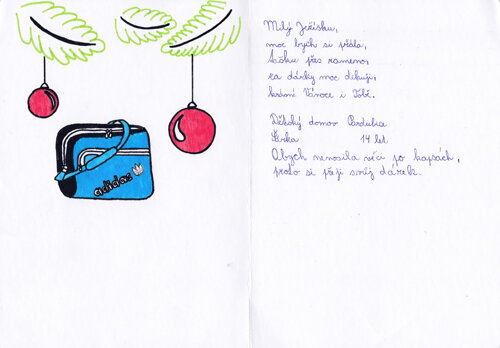 adidas
Milý Ježíšku,
moc bych si přála,
tašku přes rameno,
za dárky moc děkuji,
krásné Vánoce i Tobě.
Dětský domov Pardubice
14 let
Abych nenosila věci po kapsách,
proto si přeji svůj dárek.